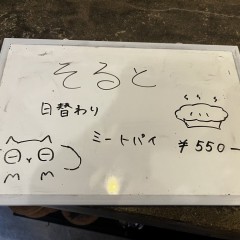 そると
日替わり
ミートパイ
¥550-